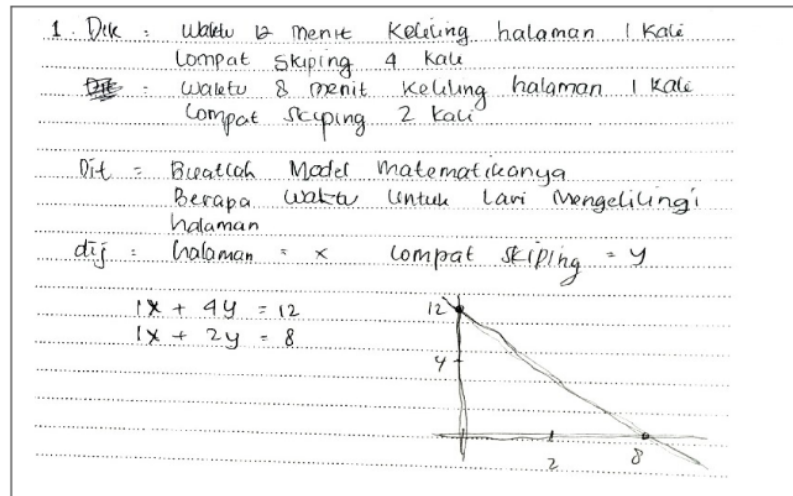 1. Dik : Waktu 12 menit Keliling halaman 1 Kali
Lompat Skiping 4 Kali
: Waktu 8 menit Keliling halaman 1 Kali
Lompat Skiping 2 Kali
Dit = Buatlah Model Matematikanya
Berapa Waktu Untuk Lari Mengelilingi
halaman
dij : halaman = x Lompat Skiping = y
1x + 4y = 12
1x + 2y = 8
12
4
2
8